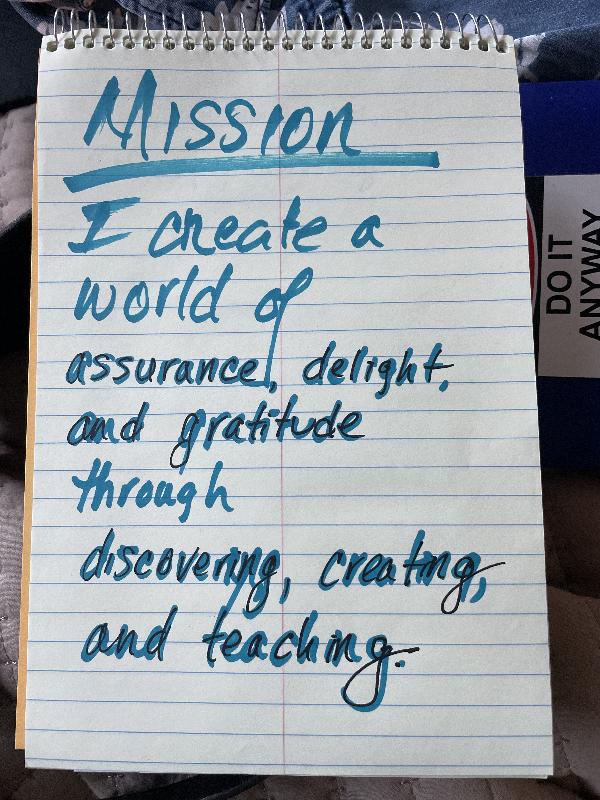 Mission
I create a
world of
assurance, delight,
and gratitude
through
discovering, creating,
and teaching.
DO IT
ANYWAY